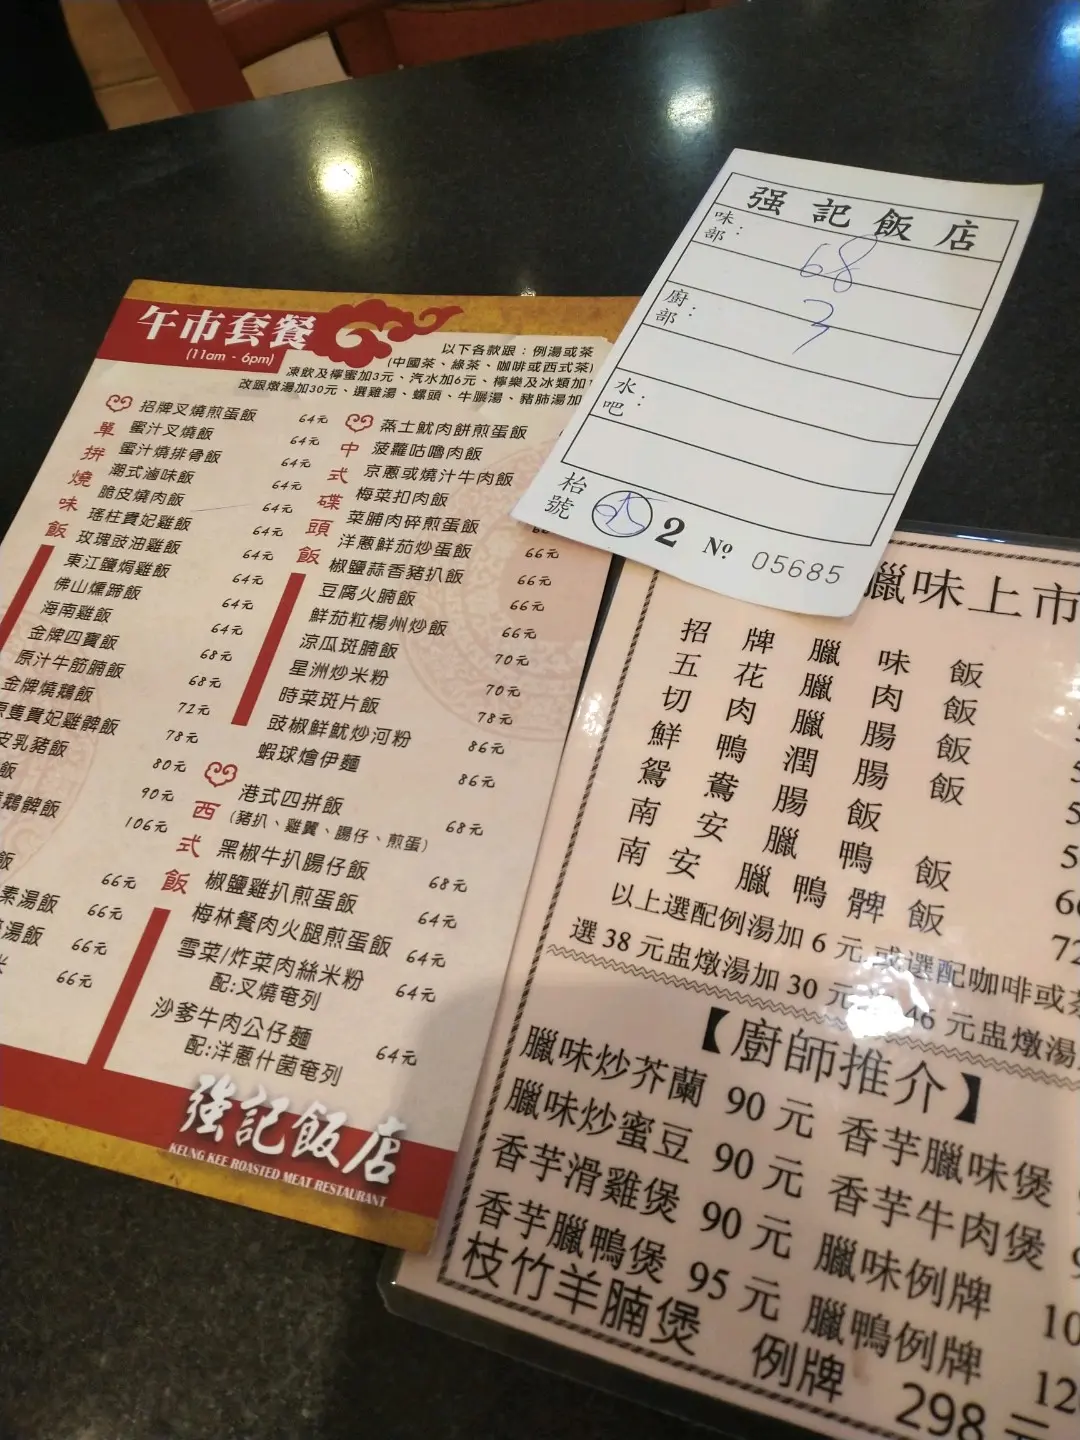 午市套餐
(11am - 6pm)
以下各款跟：例湯或茶
(中國茶、綠茶、咖啡或西式茶)
凍飲及檸蜜加3元、汽水加6元、檸樂及冰類加
改跟燉湯加30元、選雞湯、螺頭、牛𦟌湯、豬肺湯加
單拼燒味飯
招牌叉燒煎蛋飯 64元
蜜汁叉燒飯 64元
蜜汁燒排骨飯 64元
潮式滷味飯 64元
脆皮燒肉飯 64元
瑤柱貴妃雞飯 64元
玫瑰豉油雞飯 64元
東江鹽焗雞飯 64元
佛山燻蹄飯 64元
海南雞飯 64元
金牌四寶飯 68元
原汁牛筋腩飯 68元
金牌燒鵝飯 72元
隻貴妃雞髀飯 78元
皮乳豬飯 80元
飯 90元
鵝髀飯 106元
飯 66元
素湯飯 66元
湯飯 66元
米 66元
中式碟頭飯
蒸土魷肉餅煎蛋飯
菠蘿咕嚕肉飯
京蔥或燒汁牛肉飯
梅菜扣肉飯
菜脯肉碎煎蛋飯
洋蔥鮮茄炒蛋飯 66元
椒鹽蒜香豬扒飯 66元
豆腐火腩飯 66元
鮮茄粒楊州炒飯 66元
涼瓜斑腩飯 70元
星洲炒米粉 70元
時菜斑片飯 78元
豉椒鮮魷炒河粉 86元
蝦球燴伊麵 86元
西式飯
港式四拼飯 68元
(豬扒、雞翼、腸仔、煎蛋)
黑椒牛扒腸仔飯 68元
椒鹽雞扒煎蛋飯 64元
梅林餐肉火腿煎蛋飯 64元
雪菜/炸菜肉絲米粉 64元
配:叉燒奄列
沙爹牛肉公仔麵 64元
配:洋蔥什菌奄列
強記飯店
KEUNG KEE ROASTED MEAT RESTAURANT
强記飯店
味部：
68
廚部：
3
水吧：
枱號
2 No 05685
臘味上市
招牌臘味飯
五花臘肉飯
切肉臘腸飯
鮮鴨潤腸飯
鴛鴦腸飯
南安臘鴨飯
南安臘鴨髀飯 72
以上選配例湯加 6 元或選配咖啡或茶
選 38 元盅燉湯加 30 元 46 元盅燉湯
【廚師推介】
臘味炒芥蘭 90 元 香芋臘味煲
臘味炒蜜豆 90 元 香芋牛肉煲
香芋滑雞煲 90 元 臘味例牌
香芋臘鴨煲 95 元 臘鴨例牌
枝竹羊腩煲 例牌 298 元